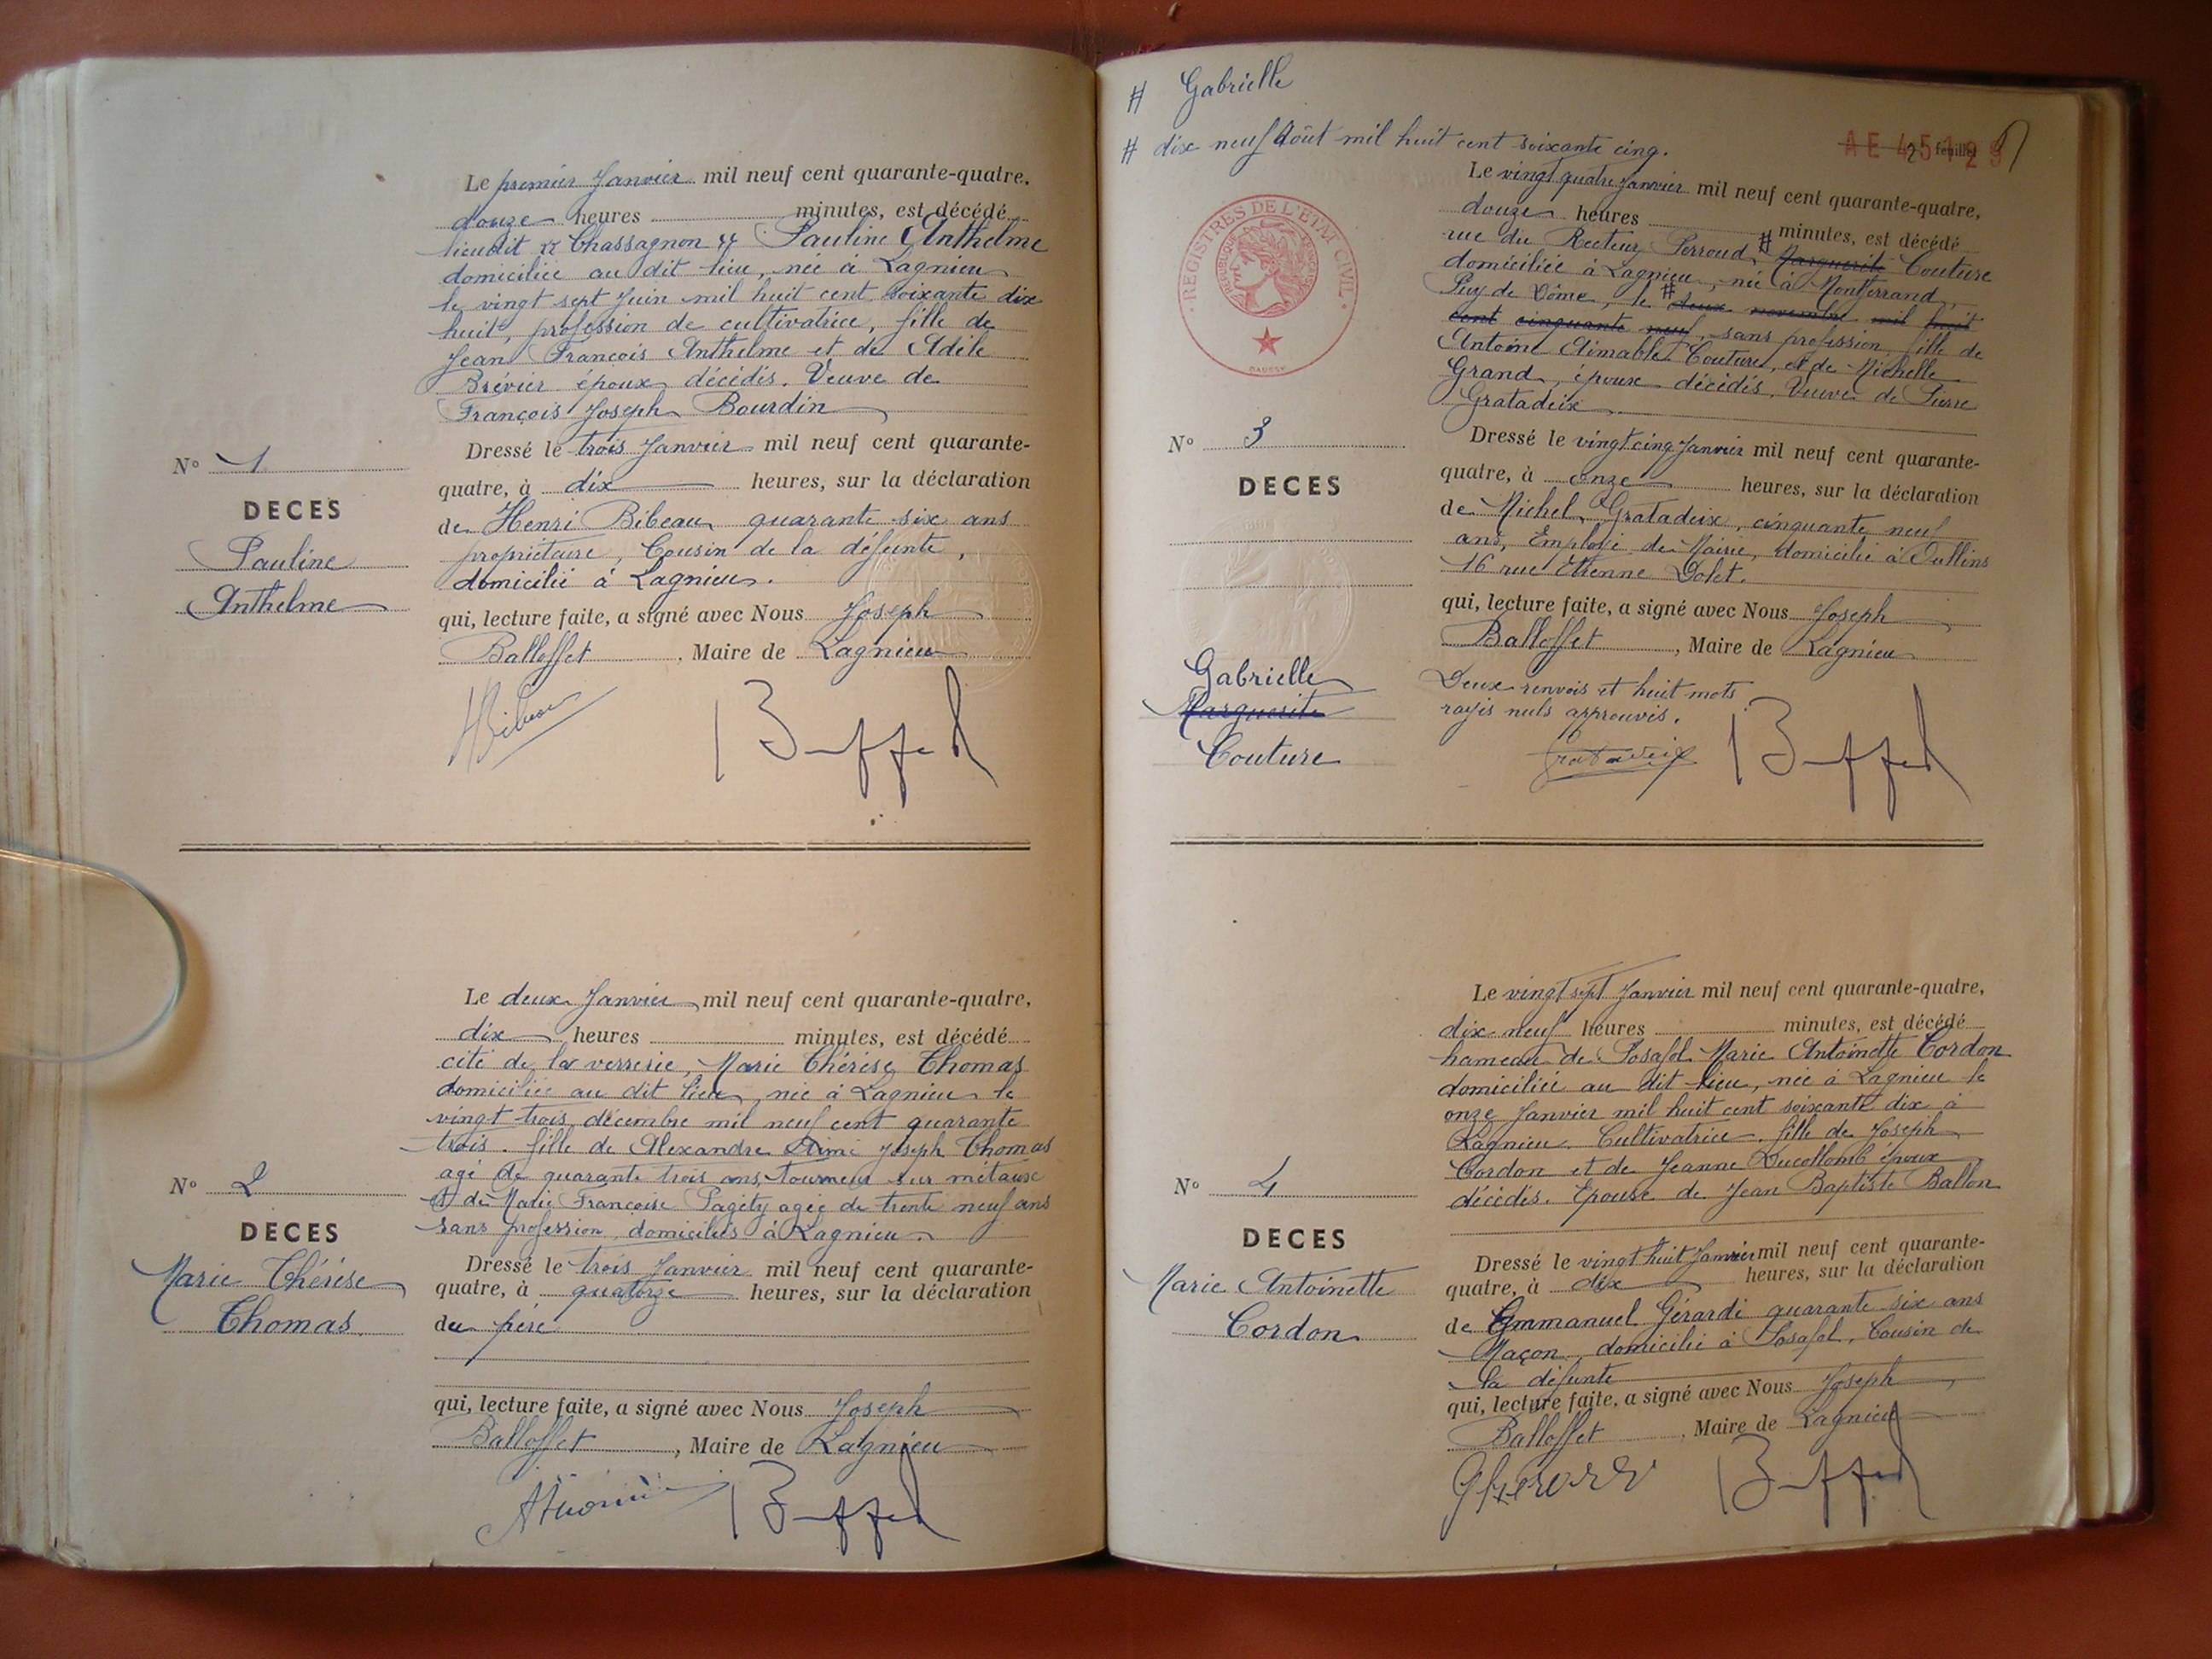 Le premier Janvier mil neuf cent quarante-quatre,
douze heures minutes, est décédé
lieudit "Chassagnon" Pauline Anthelme
domiciliée au dit lieu, née à Lagnieu
le vingt sept Juin mil huit cent soixante dix
huit, profession de cultivatrice, fille de
Jean François Anthelme et de Adèle
Brévier époux décédés. Veuve de
François Joseph Bourdin
Dressé le trois Janvier mil neuf cent quarante-
quatre, à dix heures, sur la déclaration
de Henri Bibeau quarante six ans
propriétaire, Cousin de la défunte,
domicilié à Lagnieu.
qui, lecture faite, a signé avec Nous Joseph
Balloffet, Maire de Lagnieu
N° 1
DECES
Pauline
Anthelme
Le deux Janvier mil neuf cent quarante-quatre,
dix heures minutes, est décédé
cité de la verrerie, Marie Thérèse Thomas
domiciliée au dit lieu, née à Lagnieu le
vingt trois décembre mil neuf cent quarante
trois. fille de Alexandre Aimé Joseph Thomas
agé de quarante trois ans, tourneur sur métaux
et de Marie Françoise Pagety agée de trente neuf ans
sans profession, domiciliés à Lagnieu.
Dressé le trois Janvier mil neuf cent quarante-
quatre, à quatorze heures, sur la déclaration
du père
qui, lecture faite, a signé avec Nous Joseph
Balloffet, Maire de Lagnieu
N° 2
DECES
Marie Thérèse
Thomas
# Gabrielle
# dix neuf Août mil huit cent soixante cinq.
Le vingt quatre Janvier mil neuf cent quarante-quatre,
douze heures minutes, est décédé
rue du Recteur Perroud # Marguerite Couture
domiciliée à Lagnieu, née à Montferrand,
Puy de Dôme, le # deux novembre mil huit
cent cinquante neuf, sans profession fille de
Antoine Aimable Couture, et de Michelle
Grand, époux décédés, Veuve de Pierre
Gratadeix
Dressé le vingt cinq Janvier mil neuf cent quarante-
quatre, à onze heures, sur la déclaration
de Michel Gratadeix, cinquante neuf
ans, Employé de Mairie, domicilié à Oullins
16 rue Etienne Dolet.
qui, lecture faite, a signé avec Nous Joseph
Balloffet, Maire de Lagnieu
Deux renvois et huit mots
rayés nuls approuvés.
Gratadeix
REGISTRES DE L'ETAT CIVIL
N° 3
DECES
Gabrielle
Marguerite
Couture
Le vingt sept Janvier mil neuf cent quarante-quatre,
dix neuf heures minutes, est décédé
hameau de Posafol Marie Antoinette Cordon
domiciliée au dit lieu, née à Lagnieu le
onze Janvier mil huit cent soixante dix à
Lagnieu. Cultivatrice, fille de Joseph
Cordon et de Jeanne Ducollomb époux
décédés. Epouse de Jean Baptiste Ballon
Dressé le vingt huit Janvier mil neuf cent quarante-
quatre, à dix heures, sur la déclaration
de Emmanuel Gérardi quarante six ans
Maçon, domicilié à Posafol, Cousin de
la défunte
qui, lecture faite, a signé avec Nous Joseph
Balloffet, Maire de Lagnieu
N° 4
DECES
Marie Antoinette
Cordon